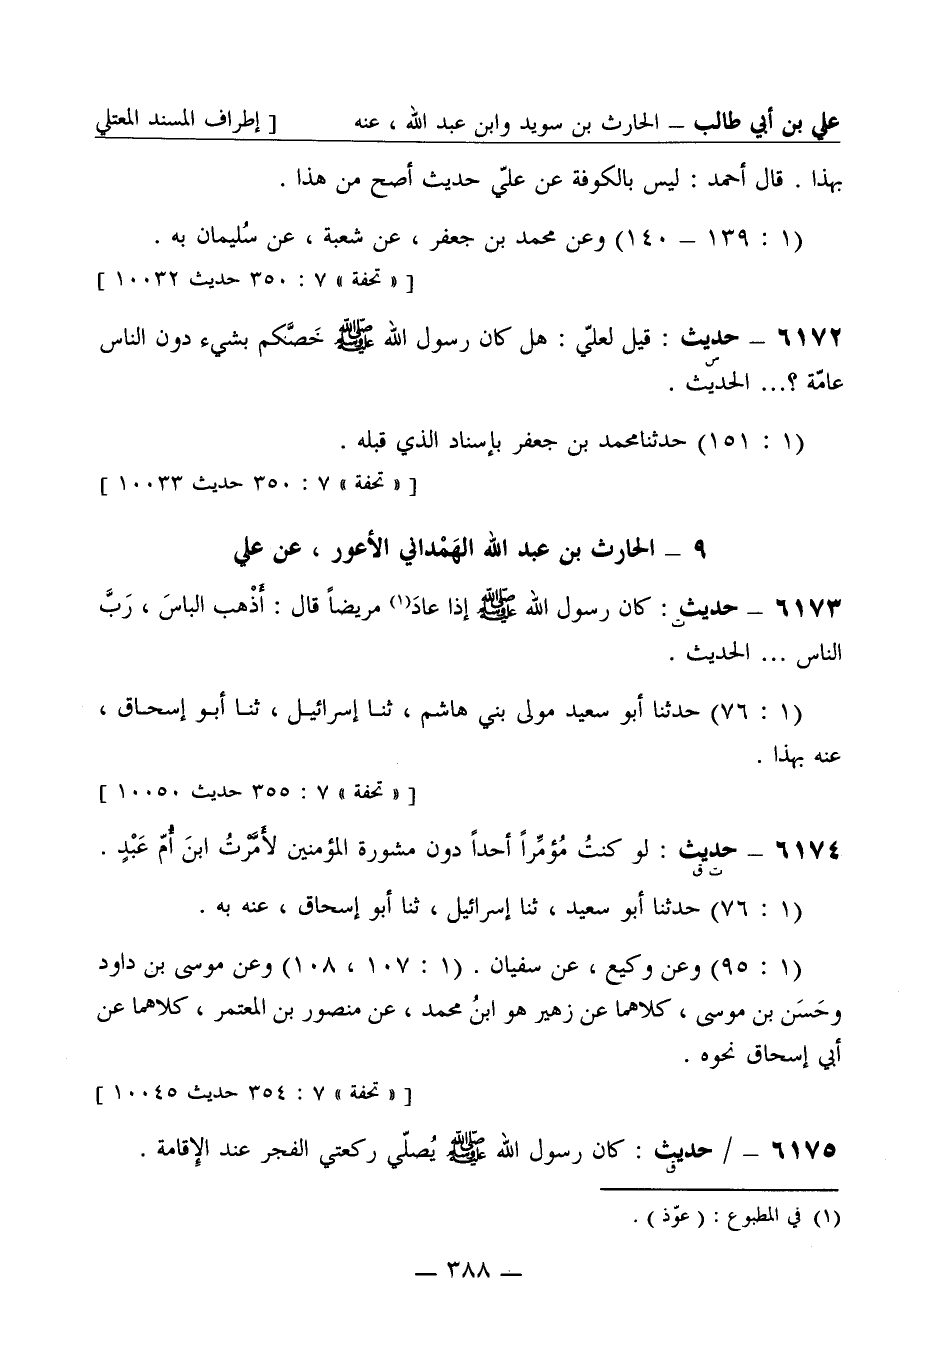 علي بن أبي طالب – الحارث بن سويد وابن عبد الله ، عنه [ إطراف المسند المعتلي
بهذا . قال أحمد : ليس بالكوفة عن عليّ حديث أصح من هذا .
(١ : ١٣٩ – ١٤٠) وعن محمد بن جعفر ، عن شعبة ، عن سُليمان به .
[ « تحفة » ٧ : ٣٥٠ حديث ١٠٠٣٢ ]
٦١٧٢ – حديث : قيل لعليّ : هل كان رسول الله ﷺ خَصَّكم بشيء دون الناس
س
عامّة ؟... الحديث .
(١ : ١٥١) حدثنامحمد بن جعفر بإسناد الذي قبله .
[ « تحفة » ٧ : ٣٥٠ حديث ١٠٠٣٣ ]
٩ – الحارث بن عبد الله الهَمْداني الأعور ، عن علي
٦١٧٣ – حديث : كان رسول الله ﷺ إذا عادَ(١) مريضاً قال : أَذْهب الباسَ ، رَبَّ
ت
الناس ... الحديث .
(١ : ٧٦) حدثنا أبو سعيد مولى بني هاشم ، ثنا إسرائيل ، ثنا أبو إسحاق ،
عنه بهذا .
[ « تحفة » ٧ : ٣٥٥ حديث ١٠٠٥٠ ]
٦١٧٤ – حديث : لو كنتُ مُؤمِّراً أحداً دون مشورة المؤمنين لأَمَّرْتُ ابنَ أُمّ عَبْدٍ .
ت ق
(١ : ٧٦) حدثنا أبو سعيد ، ثنا إسرائيل ، ثنا أبو إسحاق ، عنه به .
(١ : ٩٥) وعن وكيع ، عن سفيان . (١ : ١٠٧ ، ١٠٨) وعن موسى بن داود
وحَسَن بن موسى ، كلاهما عن زهير هو ابنُ محمد ، عن منصور بن المعتمر ، كلاهما عن
أبي إسحاق نحوه .
[ « تحفة » ٧ : ٣٥٤ حديث ١٠٠٤٥ ]
٦١٧٥ – / حديث : كان رسول الله ﷺ يُصلّي ركعتي الفجر عند الإقامة .
ق
(١) في المطبوع : ( عوّذ ) .
– ٣٨٨ –